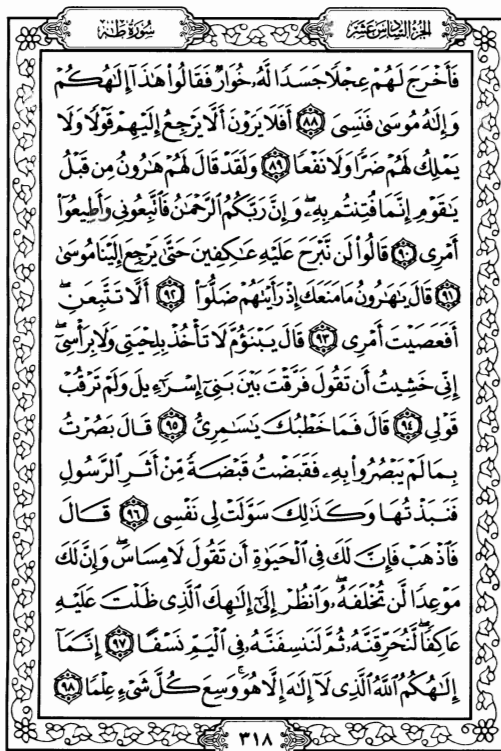 سُورَةُ طٰهٰ
الجُزْءُ السَّادِسَ عَشَرَ
فَأَخْرَجَ لَهُمْ عِجْلًا جَسَدًا لَّهُۥ خُوَارٌ فَقَالُوا۟ هَٰذَآ إِلَٰهُكُمْ
وَإِلَٰهُ مُوسَىٰ فَنَسِىَ ٨٨ أَفَلَا يَرَوْنَ أَلَّا يَرْجِعُ إِلَيْهِمْ قَوْلًا وَلَا
يَمْلِكُ لَهُمْ ضَرًّا وَلَا نَفْعًا ٨٩ وَلَقَدْ قَالَ لَهُمْ هَٰرُونُ مِن قَبْلُ
يَٰقَوْمِ إِنَّمَا فُتِنتُم بِهِۦ وَإِنَّ رَبَّكُمُ ٱلرَّحْمَٰنُ فَٱتَّبِعُونِى وَأَطِيعُوٓا۟
أَمْرِى ٩٠ قَالُوا۟ لَن نَّبْرَحَ عَلَيْهِ عَٰكِفِينَ حَتَّىٰ يَرْجِعَ إِلَيْنَا مُوسَىٰ
٩١ قَالَ يَٰهَٰرُونُ مَا مَنَعَكَ إِذْ رَأَيْتَهُمْ ضَلُّوٓا۟ ٩٢ أَلَّا تَتَّبِعَنِ
أَفَعَصَيْتَ أَمْرِى ٩٣ قَالَ يَبْنَؤُمَّ لَا تَأْخُذْ بِلِحْيَتِى وَلَا بِرَأْسِىٓ
إِنِّى خَشِيتُ أَن تَقُولَ فَرَّقْتَ بَيْنَ بَنِىٓ إِسْرَٰٓءِيلَ وَلَمْ تَرْقُبْ
قَوْلِى ٩٤ قَالَ فَمَا خَطْبُكَ يَٰسَٰمِرِىُّ ٩٥ قَالَ بَصُرْتُ
بِمَا لَمْ يَبْصُرُوا۟ بِهِۦ فَقَبَضْتُ قَبْضَةً مِّنْ أَثَرِ ٱلرَّسُولِ
فَنَبَذْتُهَا وَكَذَٰلِكَ سَوَّلَتْ لِى نَفْسِى ٩٦ قَالَ
فَٱذْهَبْ فَإِنَّ لَكَ فِى ٱلْحَيَوٰةِ أَن تَقُولَ لَا مِسَاسَ وَإِنَّ لَكَ
مَوْعِدًا لَّن تُخْلَفَهُۥ وَٱنظُرْ إِلَىٰٓ إِلَٰهِكَ ٱلَّذِى ظَلْتَ عَلَيْهِ
عَاكِفًا لَّنُحَرِّقَنَّهُۥ ثُمَّ لَنَنسِفَنَّهُۥ فِى ٱلْيَمِّ نَسْفًا ٩٧ إِنَّمَآ
إِلَٰهُكُمُ ٱللَّهُ ٱلَّذِى لَآ إِلَٰهَ إِلَّا هُوَ وَسِعَ كُلَّ شَىْءٍ عِلْمًا ٩٨
٣١٨